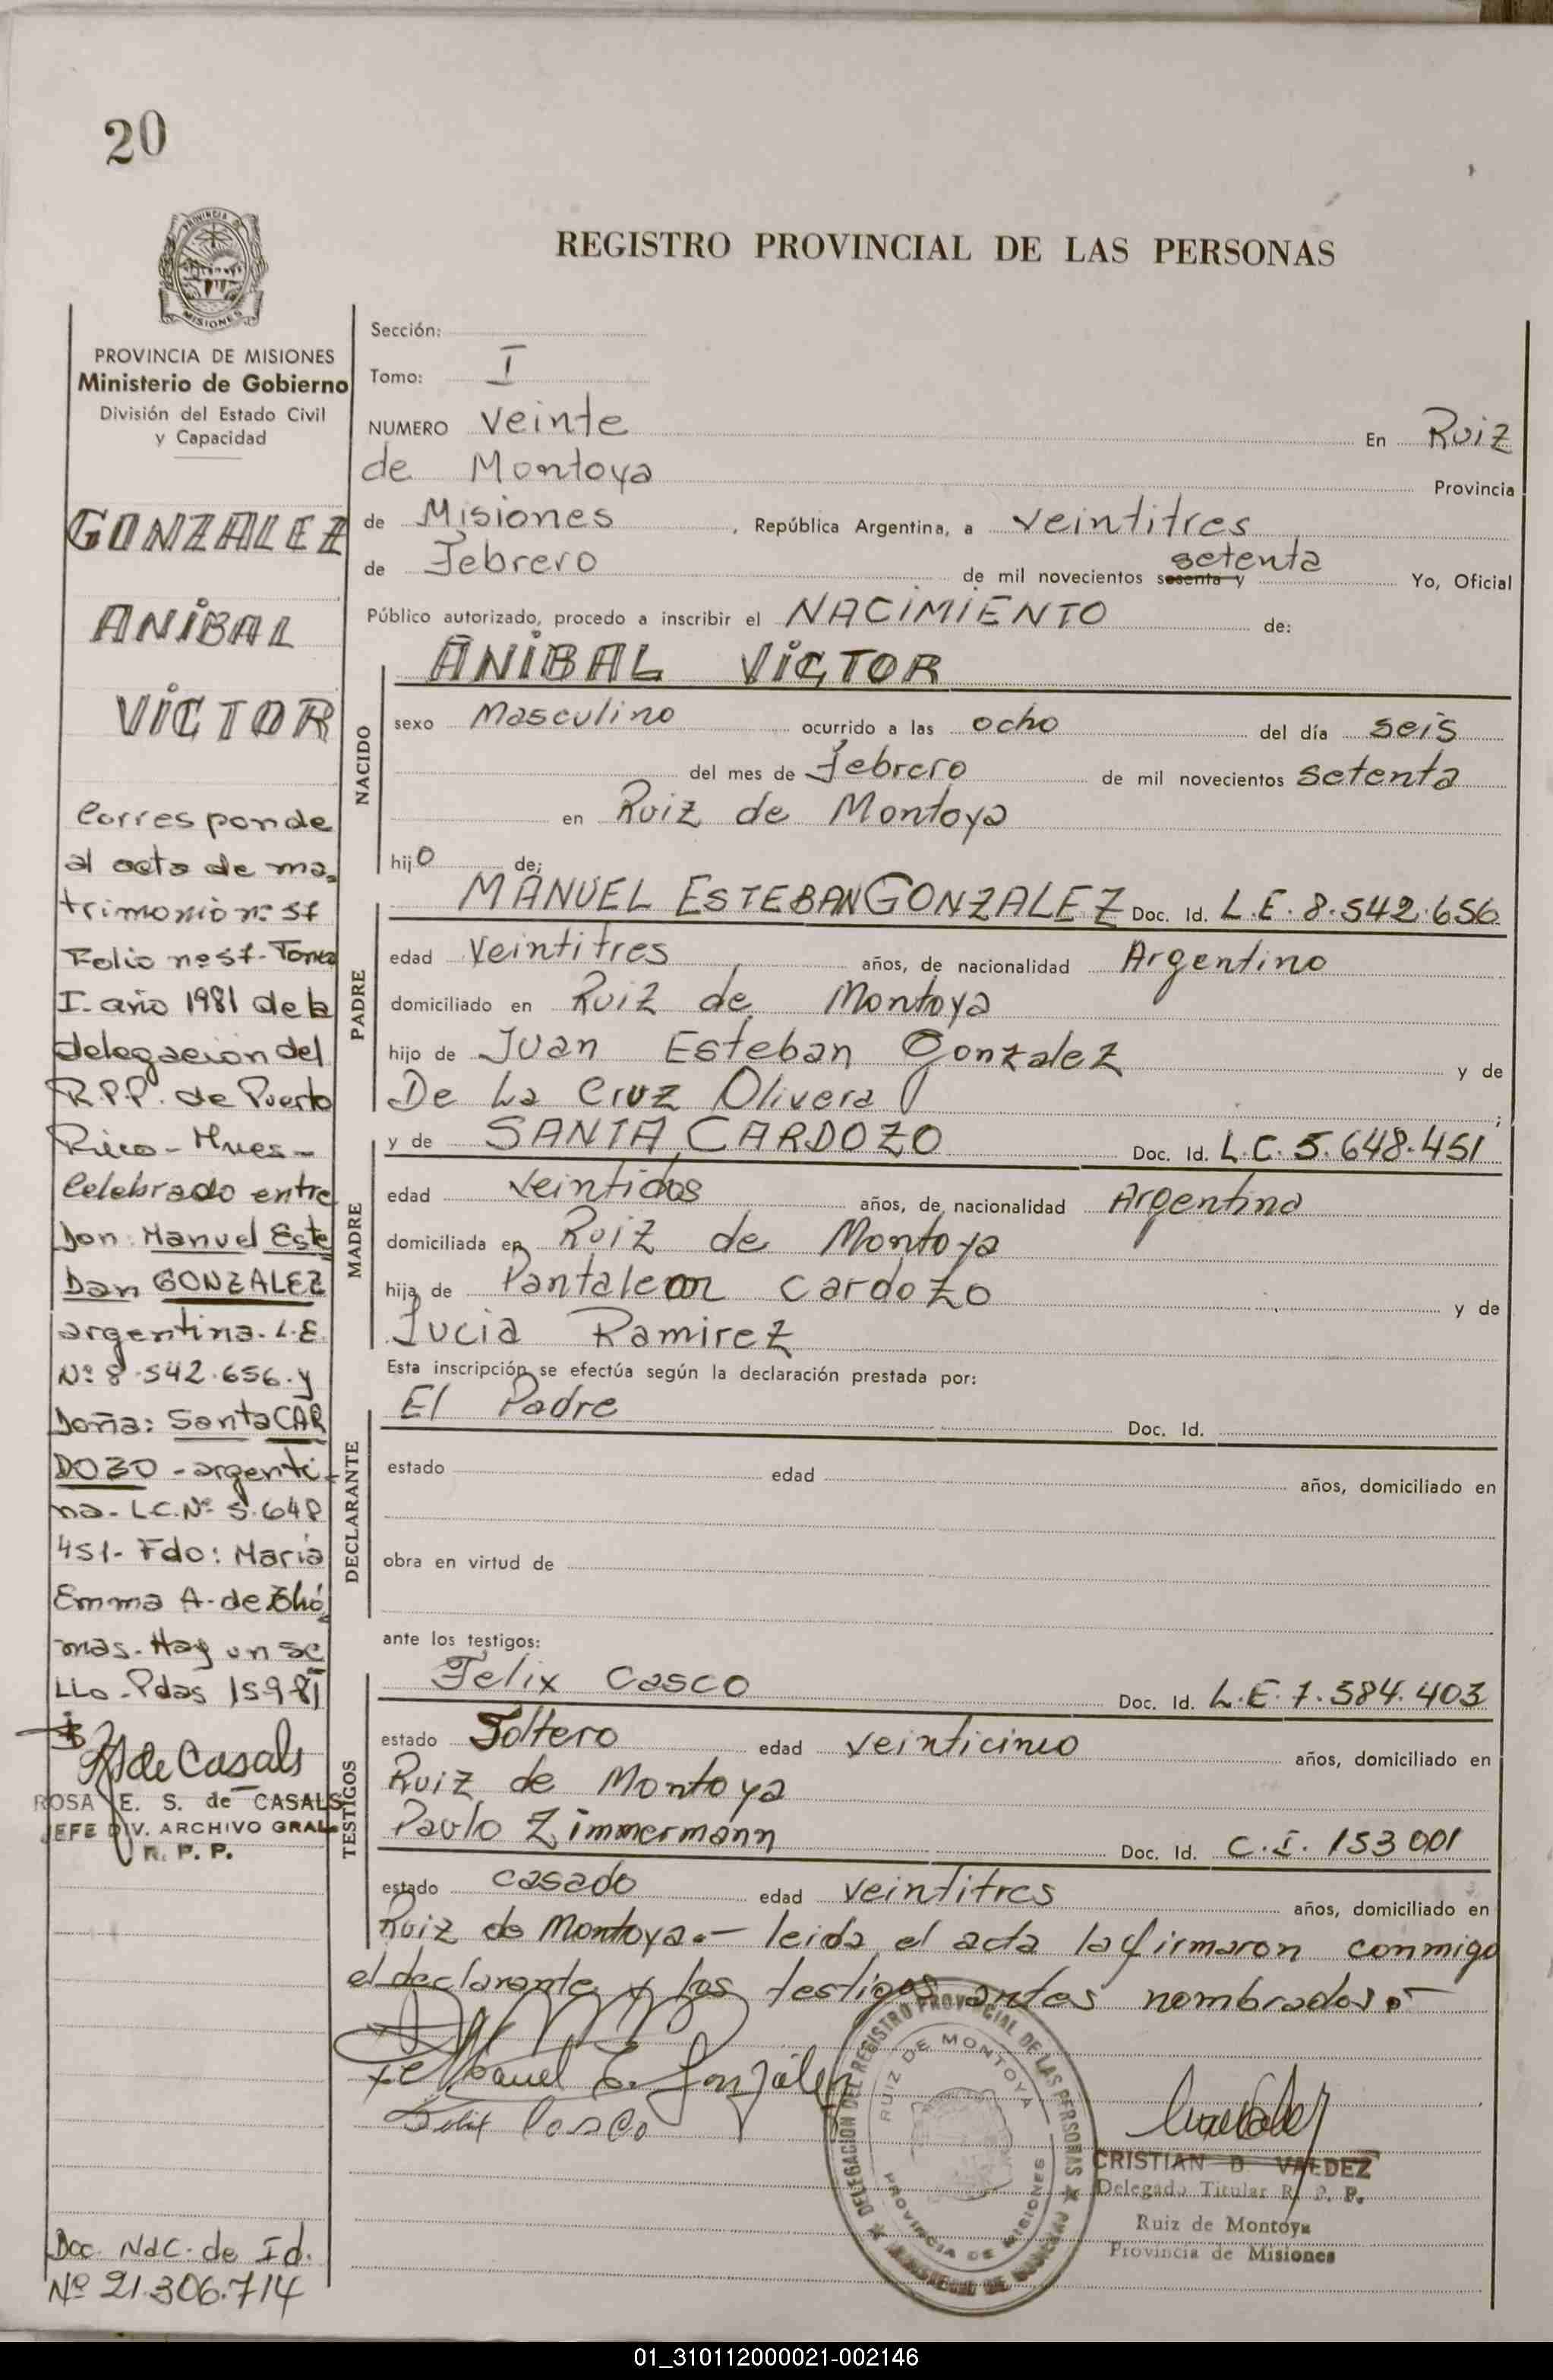 20
PROVINCIA DE MISIONES
Ministerio de Gobierno
División del Estado Civil
y Capacidad
GONZALEZ
ANIBAL
VICTOR
Corresponde
al acta de ma-
trimonio nº 57
Folio nº 57- Tomo
I- año 1981 de la
delegacion del
R.P.P. de Puerto
Rico - Mnes-
Celebrado entre
Don: Manuel Este
Ban GONZALEZ
argentina. L.E.
Nº 8.542.656. y
Doña: Santa CAR
DOZO - argenti-
na- L.C. Nº 5.648
451- Fdo: Maria
Emma A- de Thó
mas- Hay un se
LLo - Pdas 1981
ROSA E. S. de CASALS
JEFE DIV. ARCHIVO GRAL.
R. P. P.
Doc. Nac. de Id.
Nº 21.306.714
REGISTRO PROVINCIAL DE LAS PERSONAS
Sección:
Tomo: I
NUMERO Veinte En Ruiz
de Montoya Provincia
de Misiones, República Argentina, a veintitres
de Febrero de mil novecientos sesenta y setenta Yo, Oficial
Público autorizado, procedo a inscribir el NACIMIENTO de:
ANIBAL VICTOR
NACIDO
sexo Masculino ocurrido a las ocho del día seis
del mes de Febrero de mil novecientos setenta
en Ruiz de Montoya
hijo de:
PADRE
MANUEL ESTEBAN GONZALEZ Doc. Id. L.E. 8.542.656
edad Veintitres años, de nacionalidad Argentino
domiciliado en Ruiz de Montoya
hijo de Juan Esteban Gonzalez y de
De La Cruz Olivera ;
MADRE
y de SANTA CARDOZO Doc. Id. L.C. 5.648.451
edad veintidos años, de nacionalidad Argentina
domiciliada en Ruiz de Montoya
hija de Pantaleon Cardozo y de
Lucia Ramirez
Esta inscripción se efectúa según la declaración prestada por:
DECLARANTE
El Padre Doc. Id.
estado edad años, domiciliado en
obra en virtud de
ante los testigos:
TESTIGOS
Felix Casco Doc. Id. L.E. 7.584.403
estado Soltero edad veinticinco años, domiciliado en
Ruiz de Montoya
Paulo Zimmermann Doc. Id. C.I. 153001
estado casado edad veintitres años, domiciliado en
Ruiz de Montoya.- leida el acta la firmaron conmigo
el declarante y los testigos antes nombrados.-
Manuel E. González
Felix Casco
DELEGACION DEL REGISTRO PROVINCIAL DE LAS PERSONAS
RUIZ DE MONTOYA
PROVINCIA DE MISIONES
CRISTIAN D. VALDEZ
Delegado Titular R. P. P.
Ruiz de Montoya
Provincia de Misiones
01_310112000021-002146